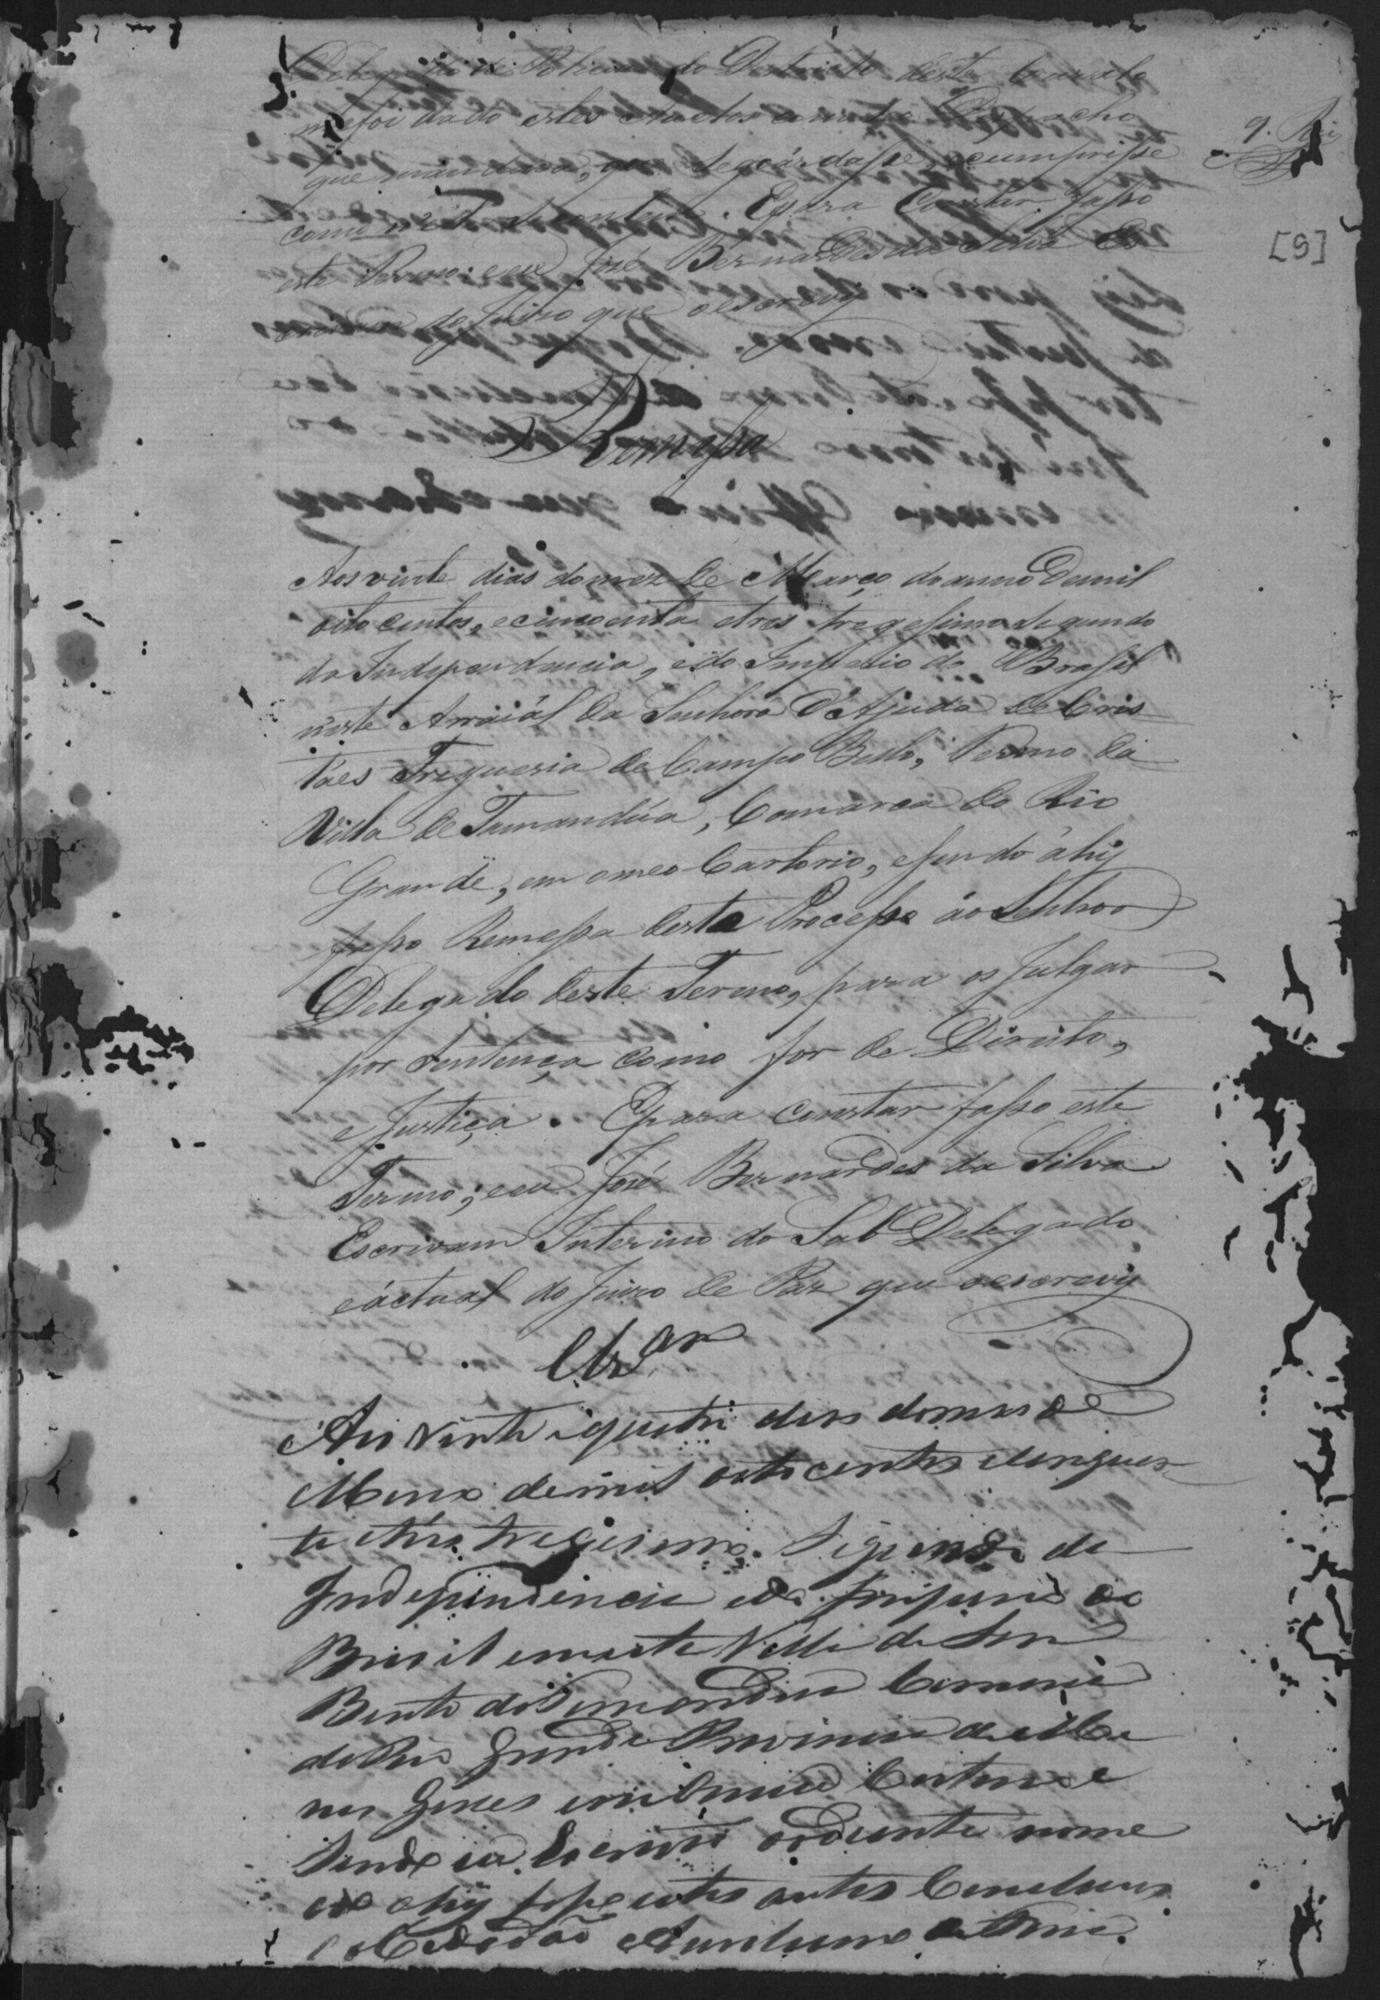 Delegado de Policia do Destricto deste
me foi dado estes Auctos com o Despacho
que mandava, que se guardasse, ecumprisse
como Contem. Epara Constar fasso
este Termo; eeu José Bernardes da Silva
do Juizo que o escrevy
9.
[9]
Remessa
Aos vinte dias do mez de Março do anno Demil
oito centos, ecincoenta etres tregessimo Segundo
da Independencia, edo Imperio do Brasil
neste Arraiál da Senhora D'Ajuda de Cris-
táes Freguesia de Campo Bello, Termo da
Villa de Tamandúa, Comarca do Rio
Grande, em omeo Cartorio, esendo áhij
fasso Remessa deste Processo áo Senhor
Delegado deste Termo, para os Julgar
por Sentença como for de Direito,
e Justiça. Epara constar fasso este
Termo; eeu José Bernardes da Silva
Escrivam Interino do Sub Delegado
eáctual do Juizo de Paz que oescrevy
Clzam
Aos vinte equatro dias domes de
Março demil oito centos ecincoen-
ta etres tregesimo Segundo da
Independencia edo Imperio do
Brasil em esta Villa de Sam
Bento do Tamandua Comarca
do Rio Grande Provincia de Mi
nas Geraes em omeu Cartorio e
Sendo eu Escrivão odiante nome
ado ahy faço estes autos Conclusos
o Cidadão